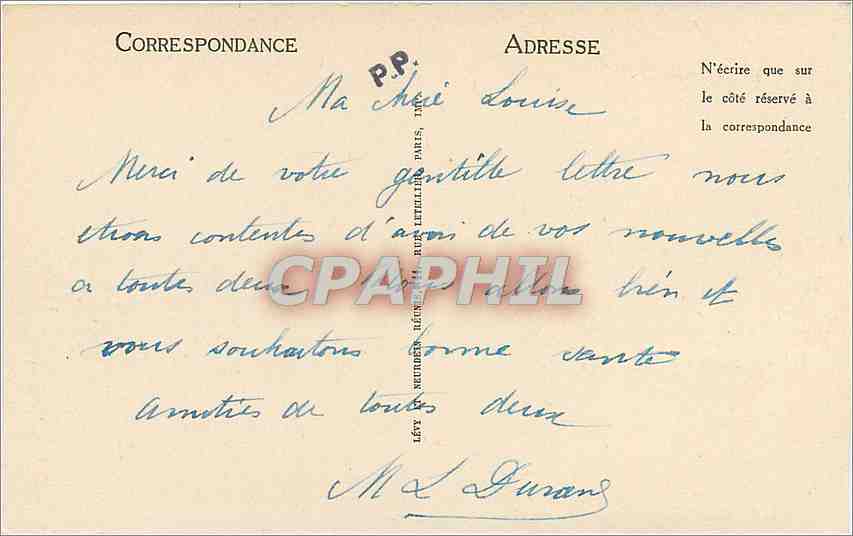 CORRESPONDANCE
ADRESSE
P.P.
N'écrire que sur
le côté réservé à
la correspondance
Ma chérie Louise
Merci de votre gentille lettre nous
étions contentes d'avoir de vos nouvelles
a toutes deux Nous allons bien et
vous souhaitons bonne santé
Amitiés de toutes deux
M L Durand
LÉVY ET NEURDEIN RÉUNIS, 44, RUE LETELLIER, PARIS, IMP.
CPAPHIL